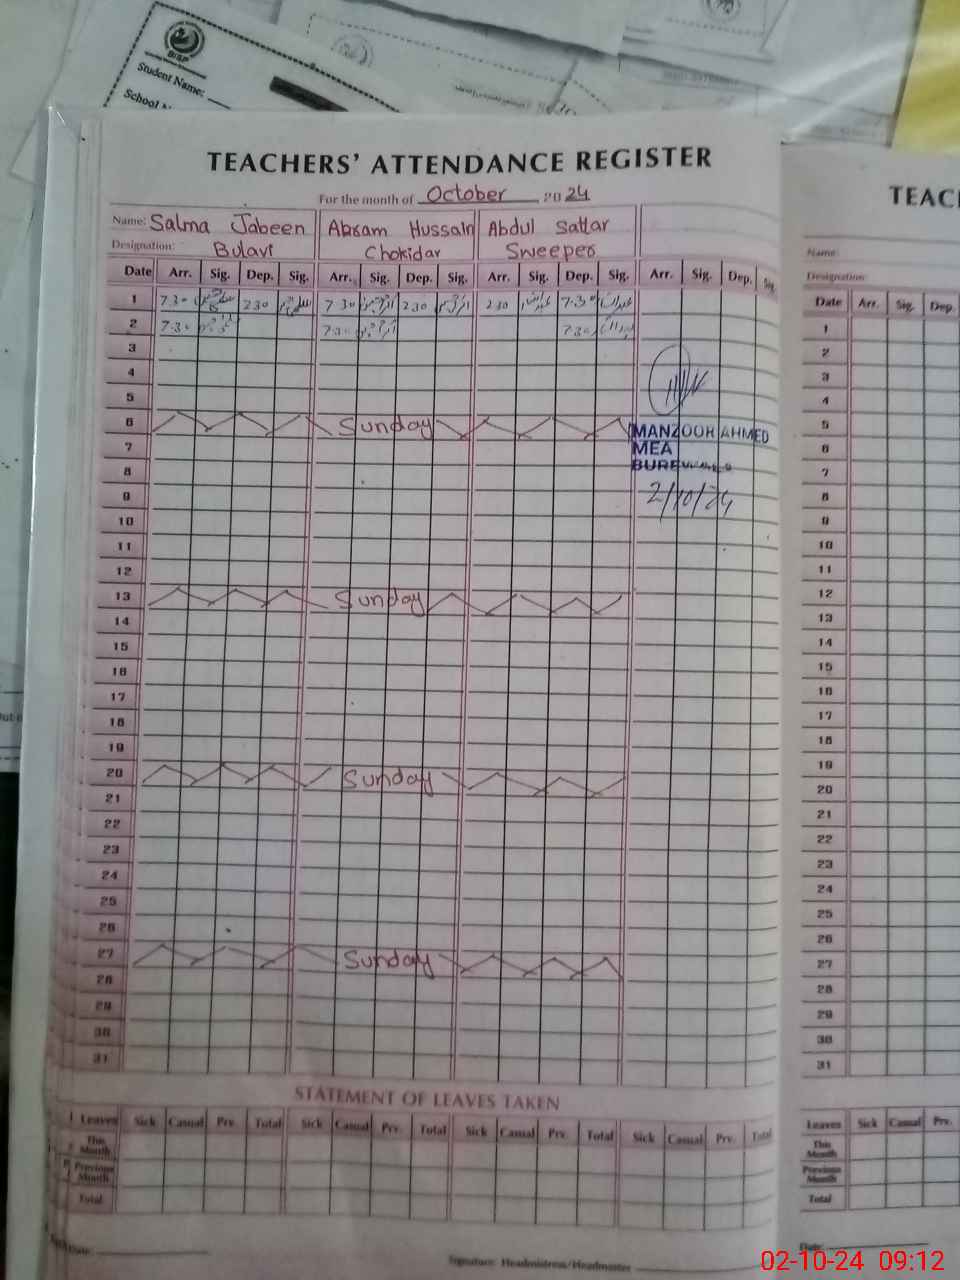 BISP
Student Name:
School
TEACHERS' ATTENDANCE REGISTER
For the month of October 2024
Name: Salma Jabeen Abram Hussain Abdul Sattar
Designation: Bulavi Chokidar Sweeper
Date Arr. Sig. Dep. Sig. Arr. Sig. Dep. Sig. Arr. Sig. Dep. Sig. Arr. Sig. Dep. Sig.
1 7.30 230 7 30 230 230 7.30
2 7.30 7.30 7.30
3
4
5
6 Sunday
MANZOOR AHMED
7 MEA
8
9 2/10/24
10
11
12
13 Sunday
14
15
16
17
18
19
20 Sunday
21
22
23
24
25
26
27 Sunday
28
29
30
31
STATEMENT OF LEAVES TAKEN
Leaves Sick Casual Prv. Total Sick Casual Prv. Total Sick Casual Prv. Total Sick Casual Prv. Total
This Month
Previous Month
Total
Date:
Signature: Headmistress/Headmaster
TEAC
Name:
Designation:
Date Arr. Sig. Dep.
1
2
3
4
5
6
7
8
9
10
11
12
13
14
15
16
17
18
19
20
21
22
23
24
25
26
27
28
29
30
31
Leaves Sick Casual Prv.
This Month
Previous Month
Total
Date:
02-10-24 09:12